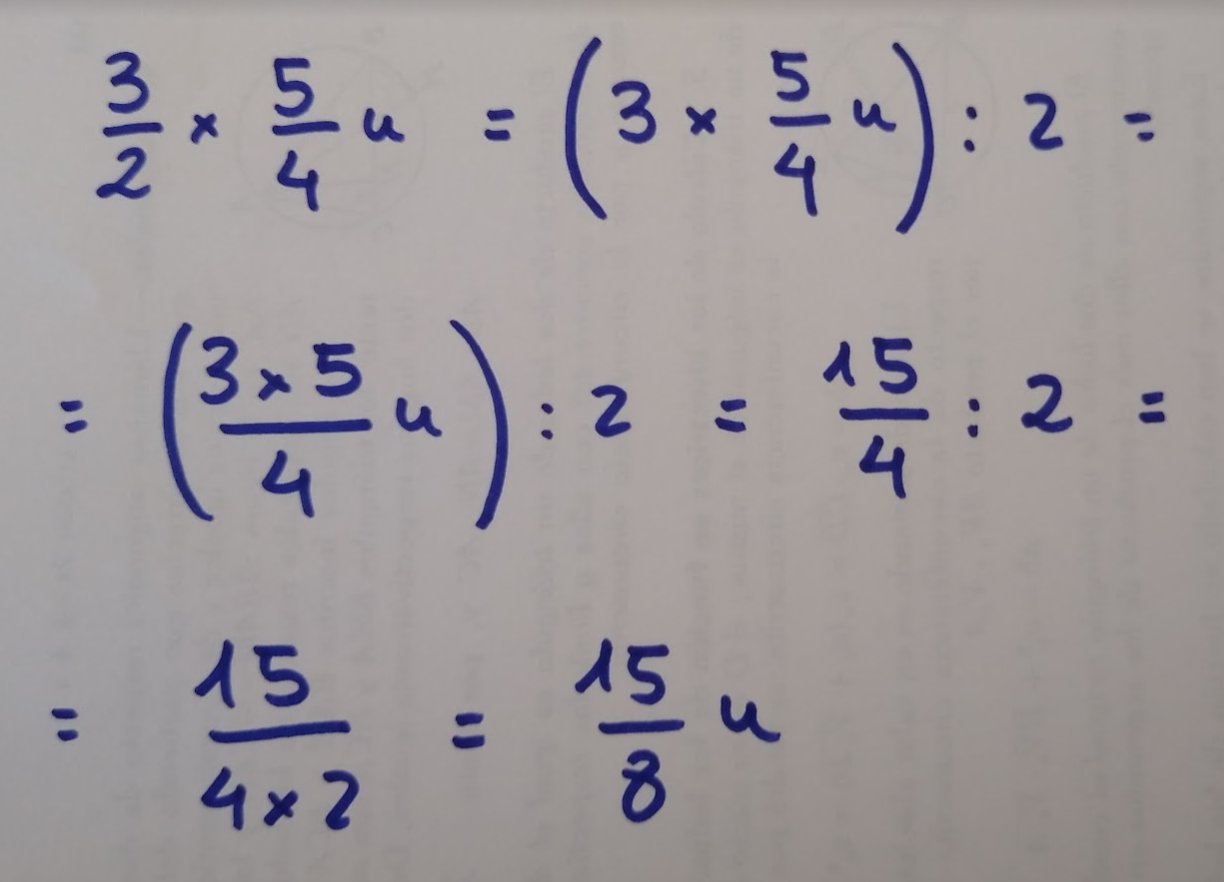 3/2 × 5/4 u = (3 × 5/4 u) : 2 =
= (3 × 5/4 u) : 2 = 15/4 : 2 =
= 15/4 × 2 = 15/8 u